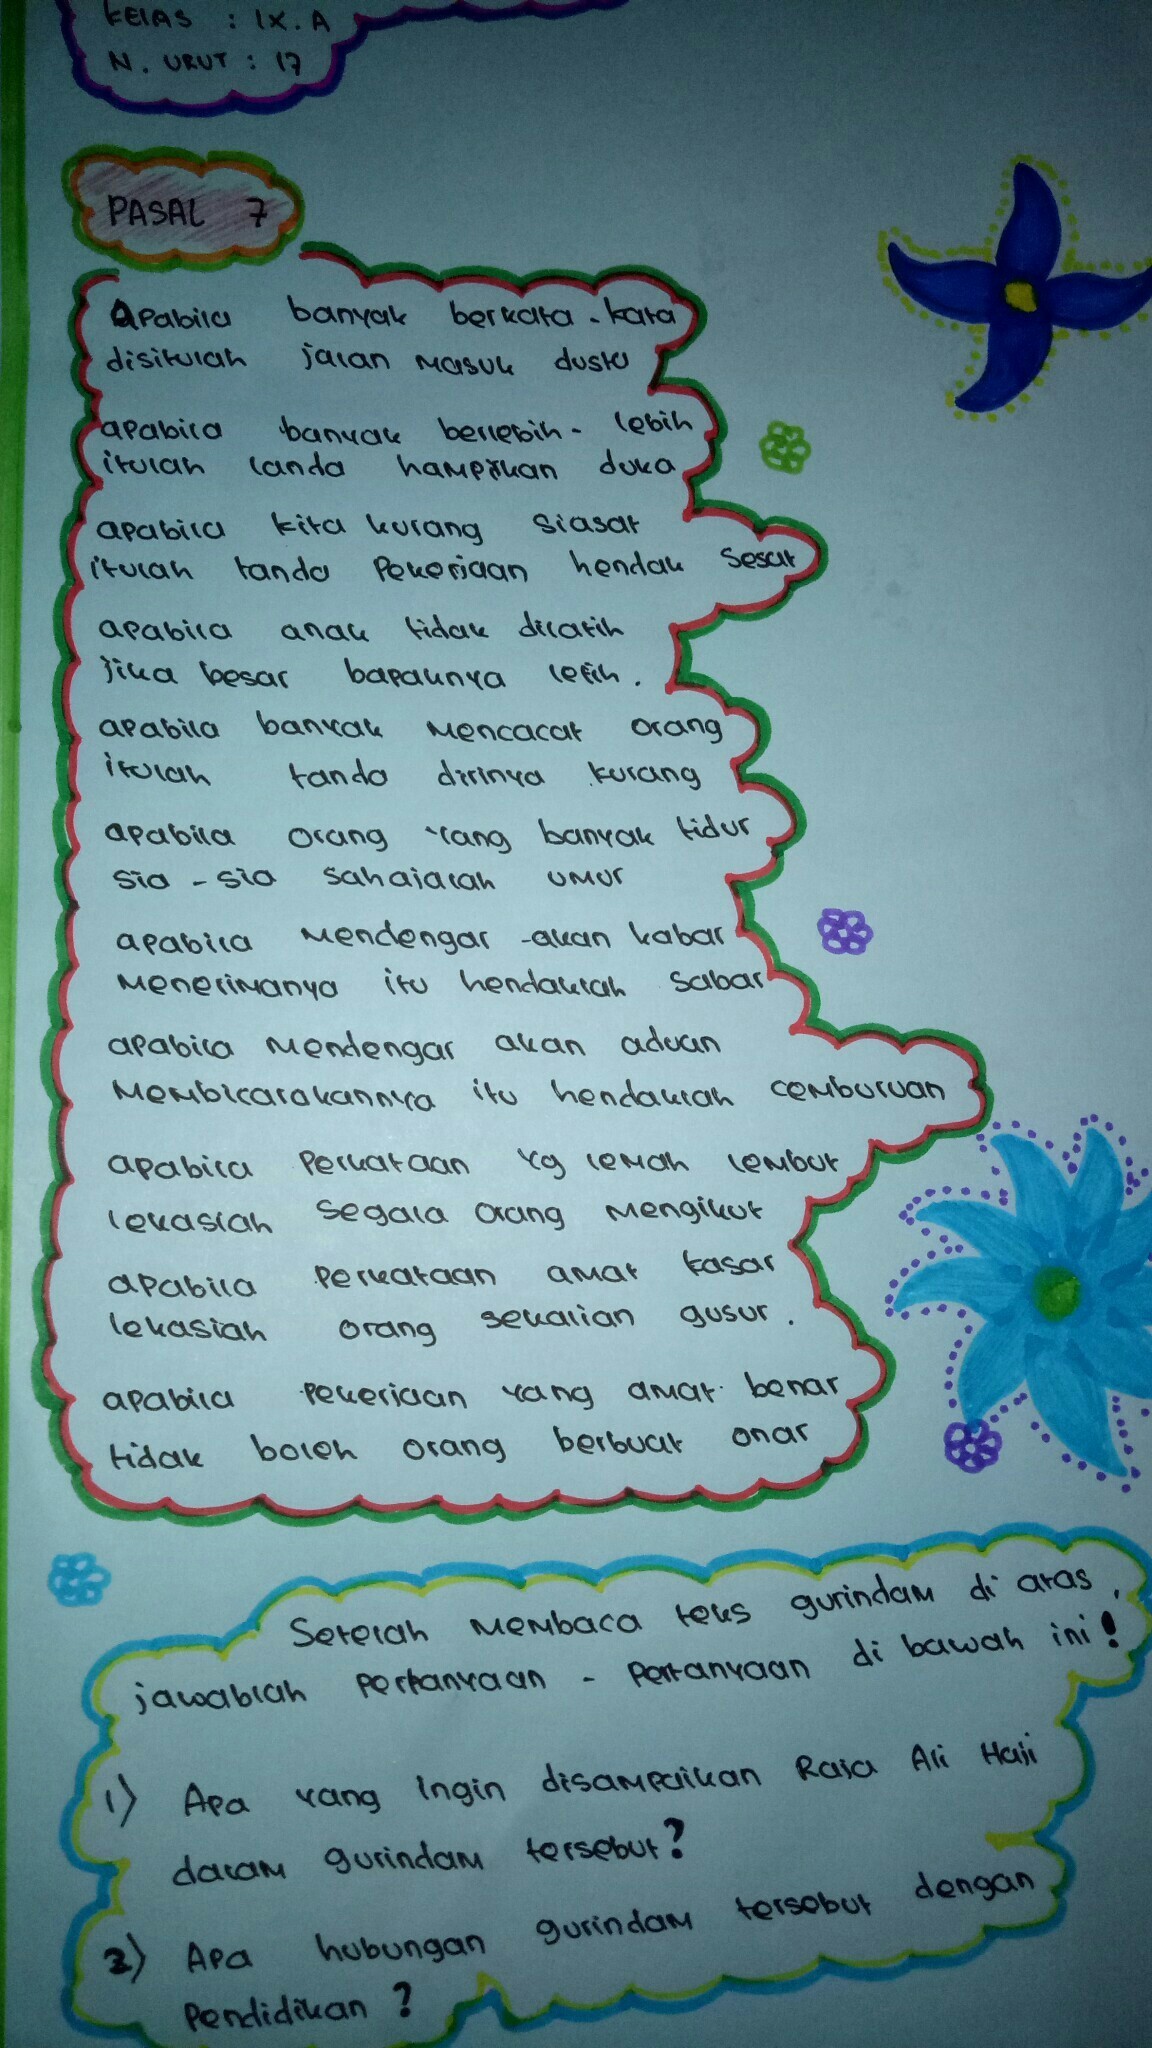 KELAS : IX.A
N. URUT : 17
PASAL 7
Apabila banyak berkata-kata
disitulah jalan masuk dusta
apabila banyak berlebih-lebih
itulah tanda hampirkan duka
apabila kita kurang siasat
itulah tanda pekerjaan hendak sesat
apabila anak tidak dilatih
jika besar bapaknya letih.
apabila banyak mencacat orang
itulah tanda dirinya kurang
apabila orang yang banyak tidur
sia-sia sahajalah umur
apabila mendengar akan kabar
menerimanya itu hendaklah sabar
apabila mendengar akan aduan
membicarakannya itu hendaklah cemburuan
apabila perkataan yg lemah lembut
lekaslah segala orang mengikut
apabila perkataan amat kasar
lekaslah orang sekalian gusur.
apabila pekerjaan yang amat benar
tidak boleh orang berbuat onar
Setelah membaca teks gurindam di atas,
jawablah pertanyaan-pertanyaan di bawah ini!
1) Apa yang ingin disampaikan Raja Ali Haji
dalam gurindam tersebut?
2) Apa hubungan gurindam tersebut dengan
pendidikan?